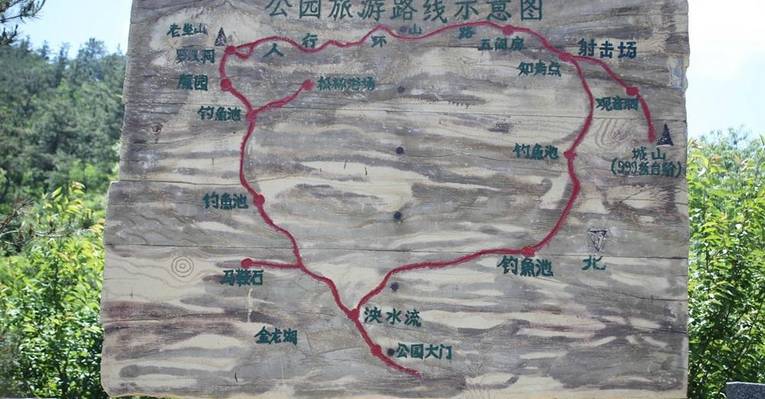 公园旅游路线示意图
老坐山
人行环山路
五阁廊
射击场
罗汉河
知青点
雁园
松林浴场
观音洞
钓鱼池
钓鱼池
城山
(999条台阶)
钓鱼池
钓鱼池
北
马鞍石
泱水流
金龙湖
公园大门